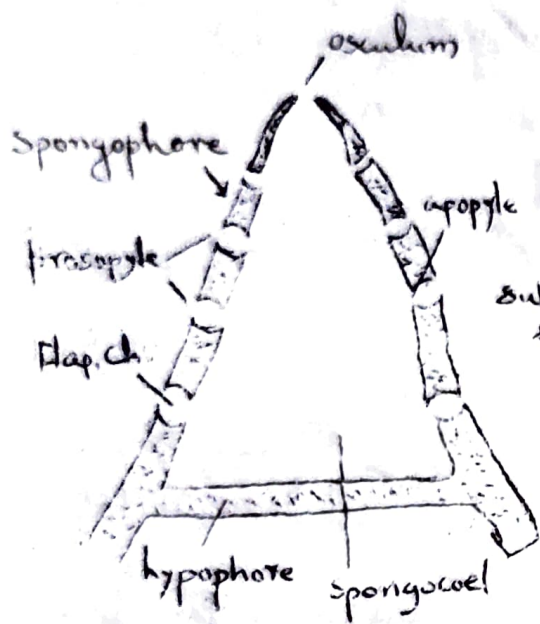 osculum
Spongophore
apopyle
prosopyle
Flag. Ch.
hypophore
spongocoel